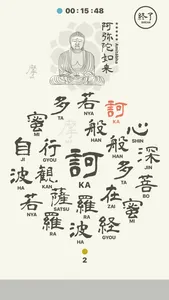 00 : 15 : 48
終了
阿弥陀如来
多
TA
若
NYA
訶
KA
蜜
MI
般
HAN
心
SHIN
自
JI
行
GYOU
観
KAN
般
HAN
深
JIN
訶
KA
波
HA
若
NYA
薩
SATSU
羅
RA
在
ZAI
菩
BO
羅
RA
波
HA
経
GYOU
多
TA
蜜
MI
2